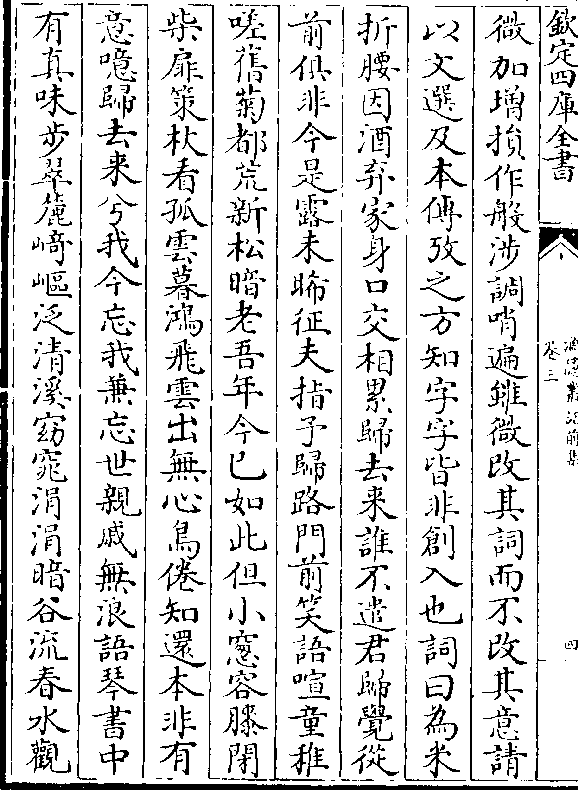 欽定四庫全書
卷三
四
微加增損作般涉調哨遍雖微改其詞而不改其意請
以文選及本傳攷之方知字字皆非創入也詞曰為米
折腰因酒弃家身口交相累歸去来誰不遣君歸覺從
前俱非今是露未晞征夫指予歸路門前笑語喧童稚
嗟舊菊都荒新松暗老吾年今已如此但小窓容膝閉
柴扉策杖看孤雲暮鴻飛雲出無心鳥倦知還本非有
意噫歸去来兮我今忘我兼忘世親戚無浪語琴書中
有真味步翠麓崎嶇泛清溪窈窕涓涓暗谷流春水觀